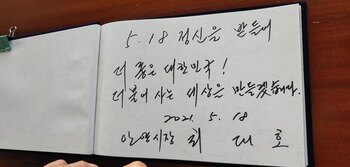 5.18 정신을 받들어
더 좋은 대한민국!
더불어 사는 세상을 만들겠습니다.
2021. 5. 18
안양시장 최 대 호